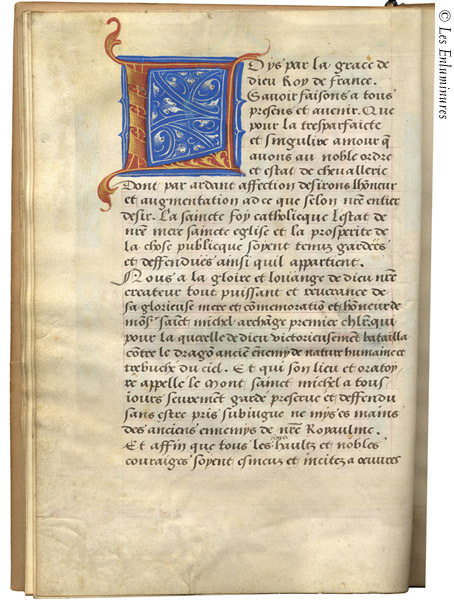 Loys par la grace de
dieu Roy de france.
Savoir faisons a tous
presens et avenir. Que
pour la tresparfaicte
et singulire amour q̄
auons au noble ordre
et estat de chevallerie
Dont par ardant affection desirons lhōneur
et augmentation ad ce que selon nr̄e entier
desir. La saincte foy catholicque Lestat de
nr̄e mere saincte eglise et la prosperite de
la chose publicque soyent tenuz gardees
et deffendues ainsi quil appartient.
Nous a la gloire et louange de dieu nr̄e
createur tout puissant et reuerance de
sa glorieuse mere et cōmemoratiō et hōneur de
mōs.r sainct michel archāge premier chl̄r qui
pour la querelle de dieu victorieusemēt batailla
cōtre le dragō anciē enēmy de natur humaine et
trebucha du ciel. Et qui son lieu et oratoyr
re appelle le Mont sainct michel a tous
iours seurement garde preserue et deffendu
sans estre pris subiugue ne mys es mains
des anciens ennemys de nr̄e Royaulme.
Et affin que tous les haultz et nobles
couraiges soyent esmeuz et incitez a oeuvres
© Les Enluminures